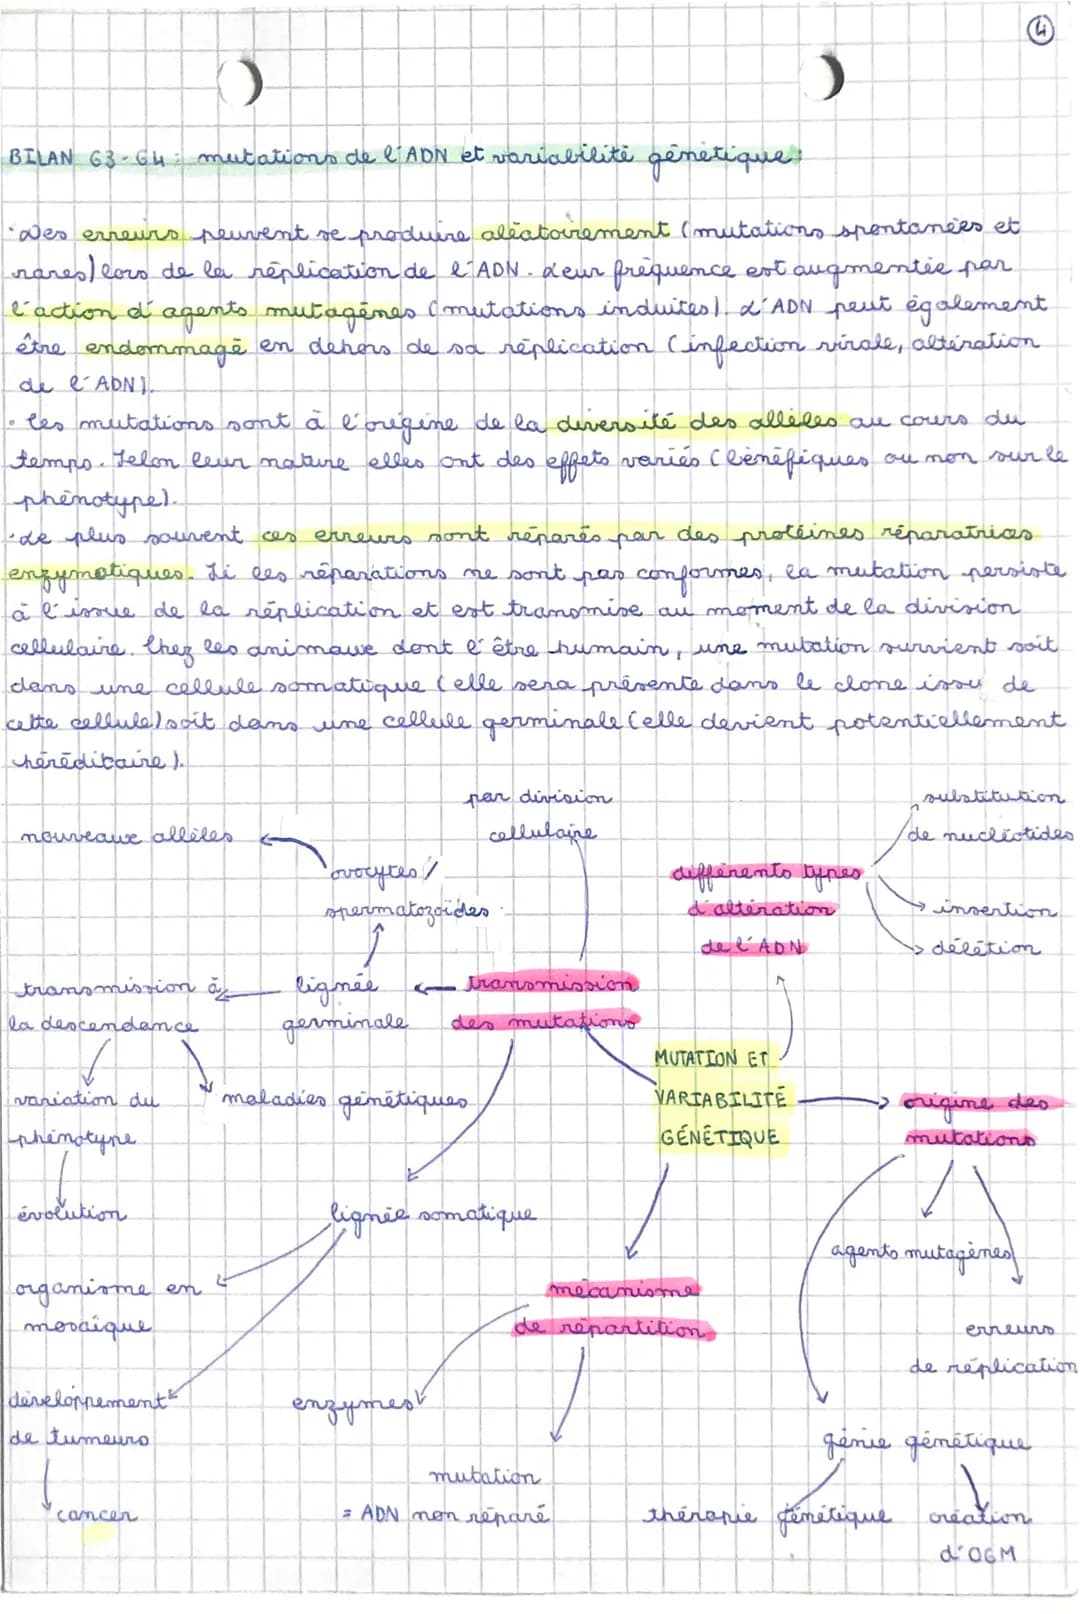 4
BILAN G3-G4 : mutations de l'ADN et variabilité génétique :
· Des erreurs peuvent se produire aléatoirement (mutations spontanées et
rares) lors de la réplication de l'ADN. Leur fréquence est augmentée par
l'action d'agents mutagènes (mutations induites). L'ADN peut également
être endommagé en dehors de sa réplication (infection virale, altération
de l'ADN).
· les mutations sont à l'origine de la diversité des allèles au cours du
temps. Selon leur nature elles ont des effets variés (bénéfiques ou non sur le
phénotype).
· Le plus souvent ces erreurs sont réparés par des protéines réparatrices
enzymatiques. Si les réparations ne sont pas conformes, la mutation persiste
à l'issue de la réplication et est transmise au moment de la division
cellulaire. Chez les animaux dont l'être humain, une mutation survient soit
dans une cellule somatique (elle sera présente dans le clone issu de
cette cellule) soit dans une cellule germinale (elle devient potentiellement
héréditaire).
par division
cellulaire
substitution
de nucléotides
nouveaux allèles
ovocytes /
spermatozoïdes
différents types
d'altération
de l'ADN
insertion
délétion
transmission à
la descendance
lignée
germinale
transmission
des mutations
MUTATION ET
VARIABILITÉ
GÉNÉTIQUE
origine des
mutations
variation du
phénotype
maladies génétiques
évolution
lignée somatique
agents mutagènes
organisme en
mosaïque
mécanisme
de répartition
erreurs
de réplication
développement
de tumeurs
enzymes
génie génétique
cancer
mutation
= ADN non réparé
thérapie génétique
création
d'OGM